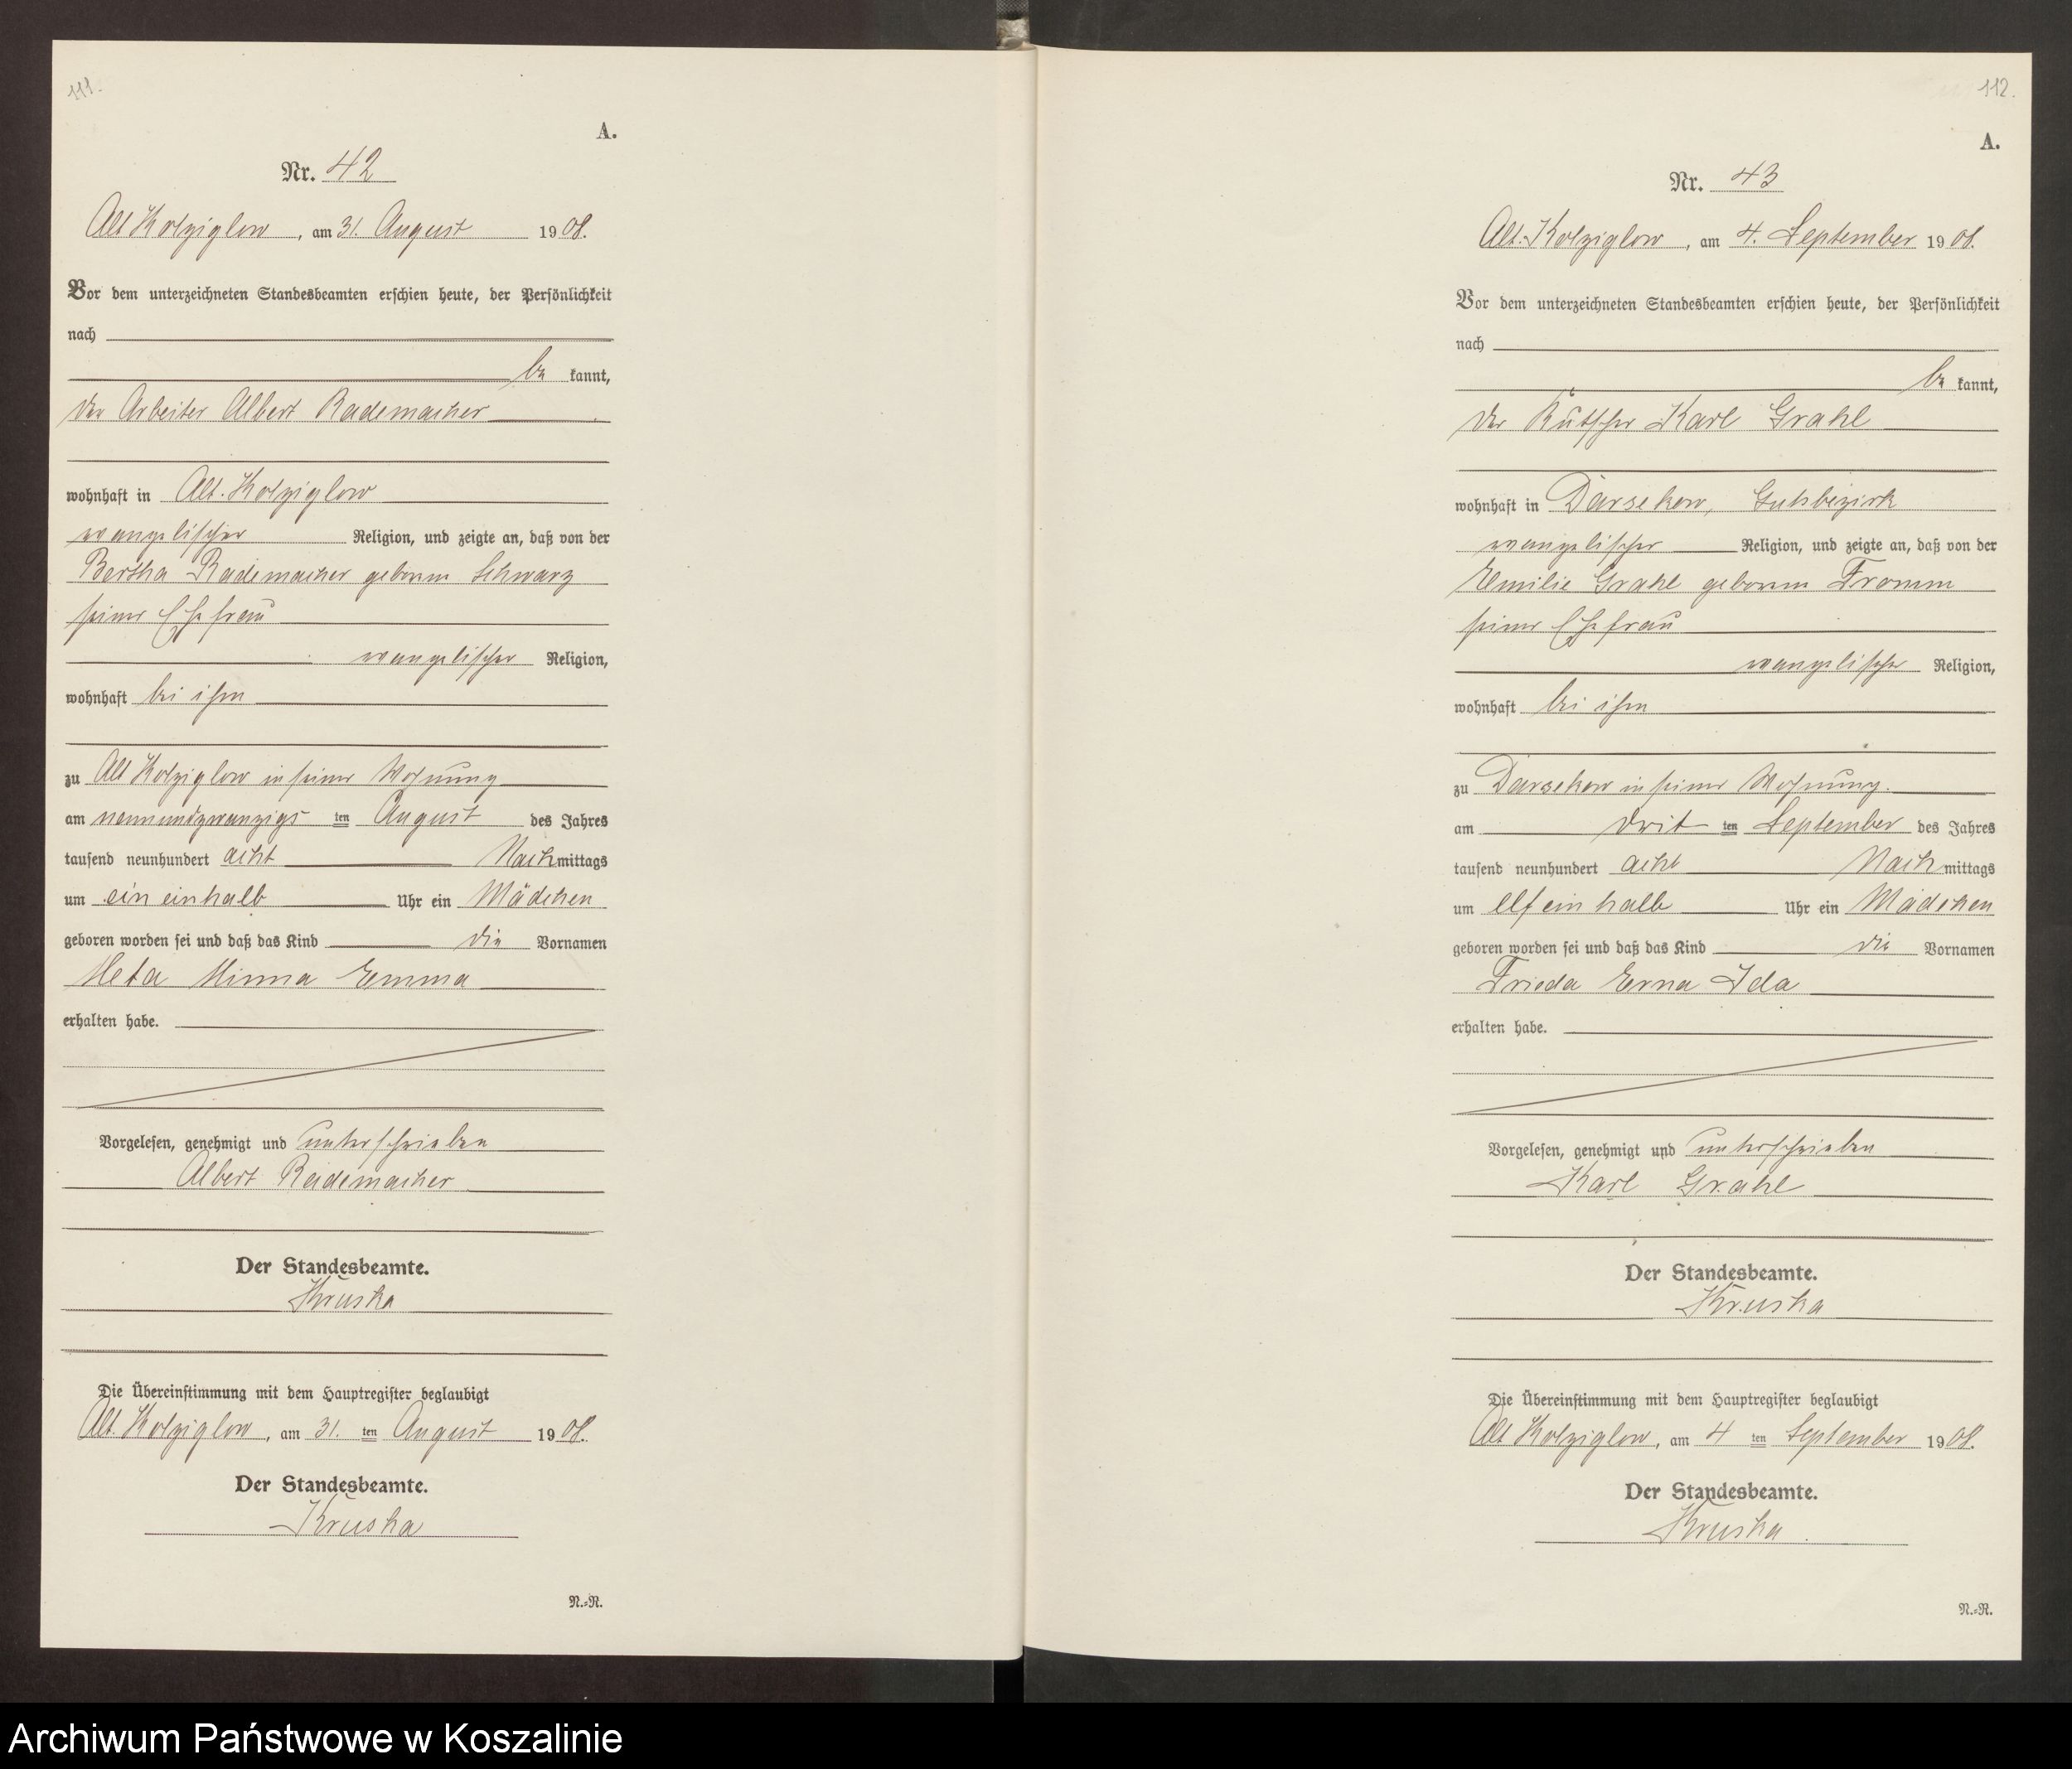 111.
A.
Nr. 42
Alt Kolziglow, am 31. August 1908.
Vor dem unterzeichneten Standesbeamten erschien heute, der Persönlichkeit
nach
be kannt,
der Arbeiter Albert Rademacher
wohnhaft in Alt. Kolziglow
evangelischer Religion, und zeigte an, daß von der
Bertha Rademacher geborene Schwarz
seiner Ehefrau
evangelischer Religion,
wohnhaft bei ihm
zu Alt Kolziglow in seiner Wohnung
am neunundzwanzigs ten August des Jahres
tausend neunhundert acht Nachmittags
um ein einhalb Uhr ein Mädchen
geboren worden sei und daß das Kind die Vornamen
Meta Minna Emma
erhalten habe.
Vorgelesen, genehmigt und unterschrieben
Albert Rademacher
Der Standesbeamte.
Kruska
Die Übereinstimmung mit dem Hauptregister beglaubigt
Alt. Kolziglow, am 31. ten August 1908.
Der Standesbeamte.
Kruska
N.=R.
112.
A.
Nr. 43
Alt. Kolziglow, am 4. September 1908.
Vor dem unterzeichneten Standesbeamten erschien heute, der Persönlichkeit
nach
be kannt,
der Kutscher Karl Grahl
wohnhaft in Darsekow, Gutsbezirk
evangelischer Religion, und zeigte an, daß von der
Emilie Grahl geborene Fromm
seiner Ehefrau
evangelischer Religion,
wohnhaft bei ihm
zu Darsekow in seiner Wohnung.
am drit ten September des Jahres
tausend neunhundert acht Nach mittags
um elf ein halb Uhr ein Mädchen
geboren worden sei und daß das Kind die Vornamen
Frieda Erna Ida
erhalten habe.
Vorgelesen, genehmigt und unterschrieben
Karl Grahl
Der Standesbeamte.
Kruska
Die Übereinstimmung mit dem Hauptregister beglaubigt
Alt Kolziglow, am 4 ten September 1908.
Der Standesbeamte.
Kruska
N.=R.
Archiwum Państwowe w Koszalinie